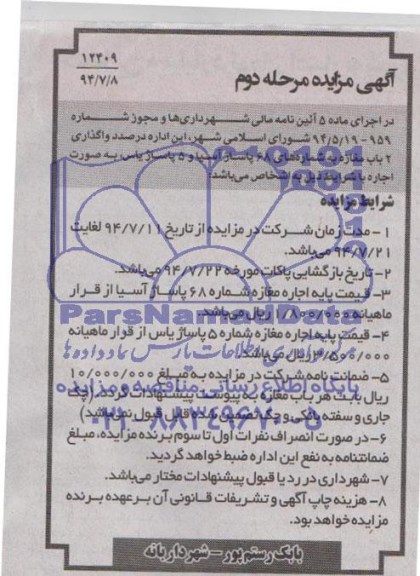 ۱۲۴۰۹
۹۴/۷/۸
آگهی مزایده مرحله دوم
در اجرای ماده ۵ آئین نامه مالی شهرداری‌ها و مجوز شماره
۹۵۹ - ۹۴/۵/۱۹ شورای اسلامی شهر، این اداره درصدد واگذاری
۲ باب مغازه به شماره‌های ۶۸ پاساژ آسیا و ۵ پاساژ یاس به صورت
اجاره با شرایط ذیل به اشخاص می‌باشد:
شرایط مزایده
۱- مدت زمان شرکت در مزایده از تاریخ ۹۴/۷/۱۱ لغایت
۹۴/۷/۲۱ می‌باشد.
۲- تاریخ بازگشایی پاکات مورخه ۹۴/۷/۲۲ می‌باشد.
۳- قیمت پایه اجاره مغازه شماره ۶۸ پاساژ آسیا از قرار
ماهیانه ۱/۸۰۰/۰۰۰ ریال می‌باشد.
۴- قیمت پایه اجاره مغازه شماره ۵ پاساژ یاس از قرار ماهیانه
۳/۵۰۰/۰۰۰ ریال می‌باشد.
۵- ضمانت نامه شرکت در مزایده به مبلغ ۱۰/۰۰۰/۰۰۰
ریال بابت هر باب مغازه به پیوست پیشنهادات گردد. (چک
جاری و سفته بانکی و چک تضمین شده قابل قبول نمی‌باشد)
۶- در صورت انصراف نفرات اول تا سوم برنده مزایده، مبلغ
ضمانتنامه به نفع این اداره ضبط خواهد گردید.
۷- شهرداری در رد یا قبول پیشنهادات مختار می‌باشد.
۸- هزینه چاپ آگهی و تشریفات قانونی آن بر عهده برنده
مزایده خواهد بود.
بابک رستم‌پور - شهردار بانه
ParsNamadData
پایگاه اطلاع رسانی مناقصه و مزایده
۰۲۱-۸۸۳۴۹۶۷۰-۵